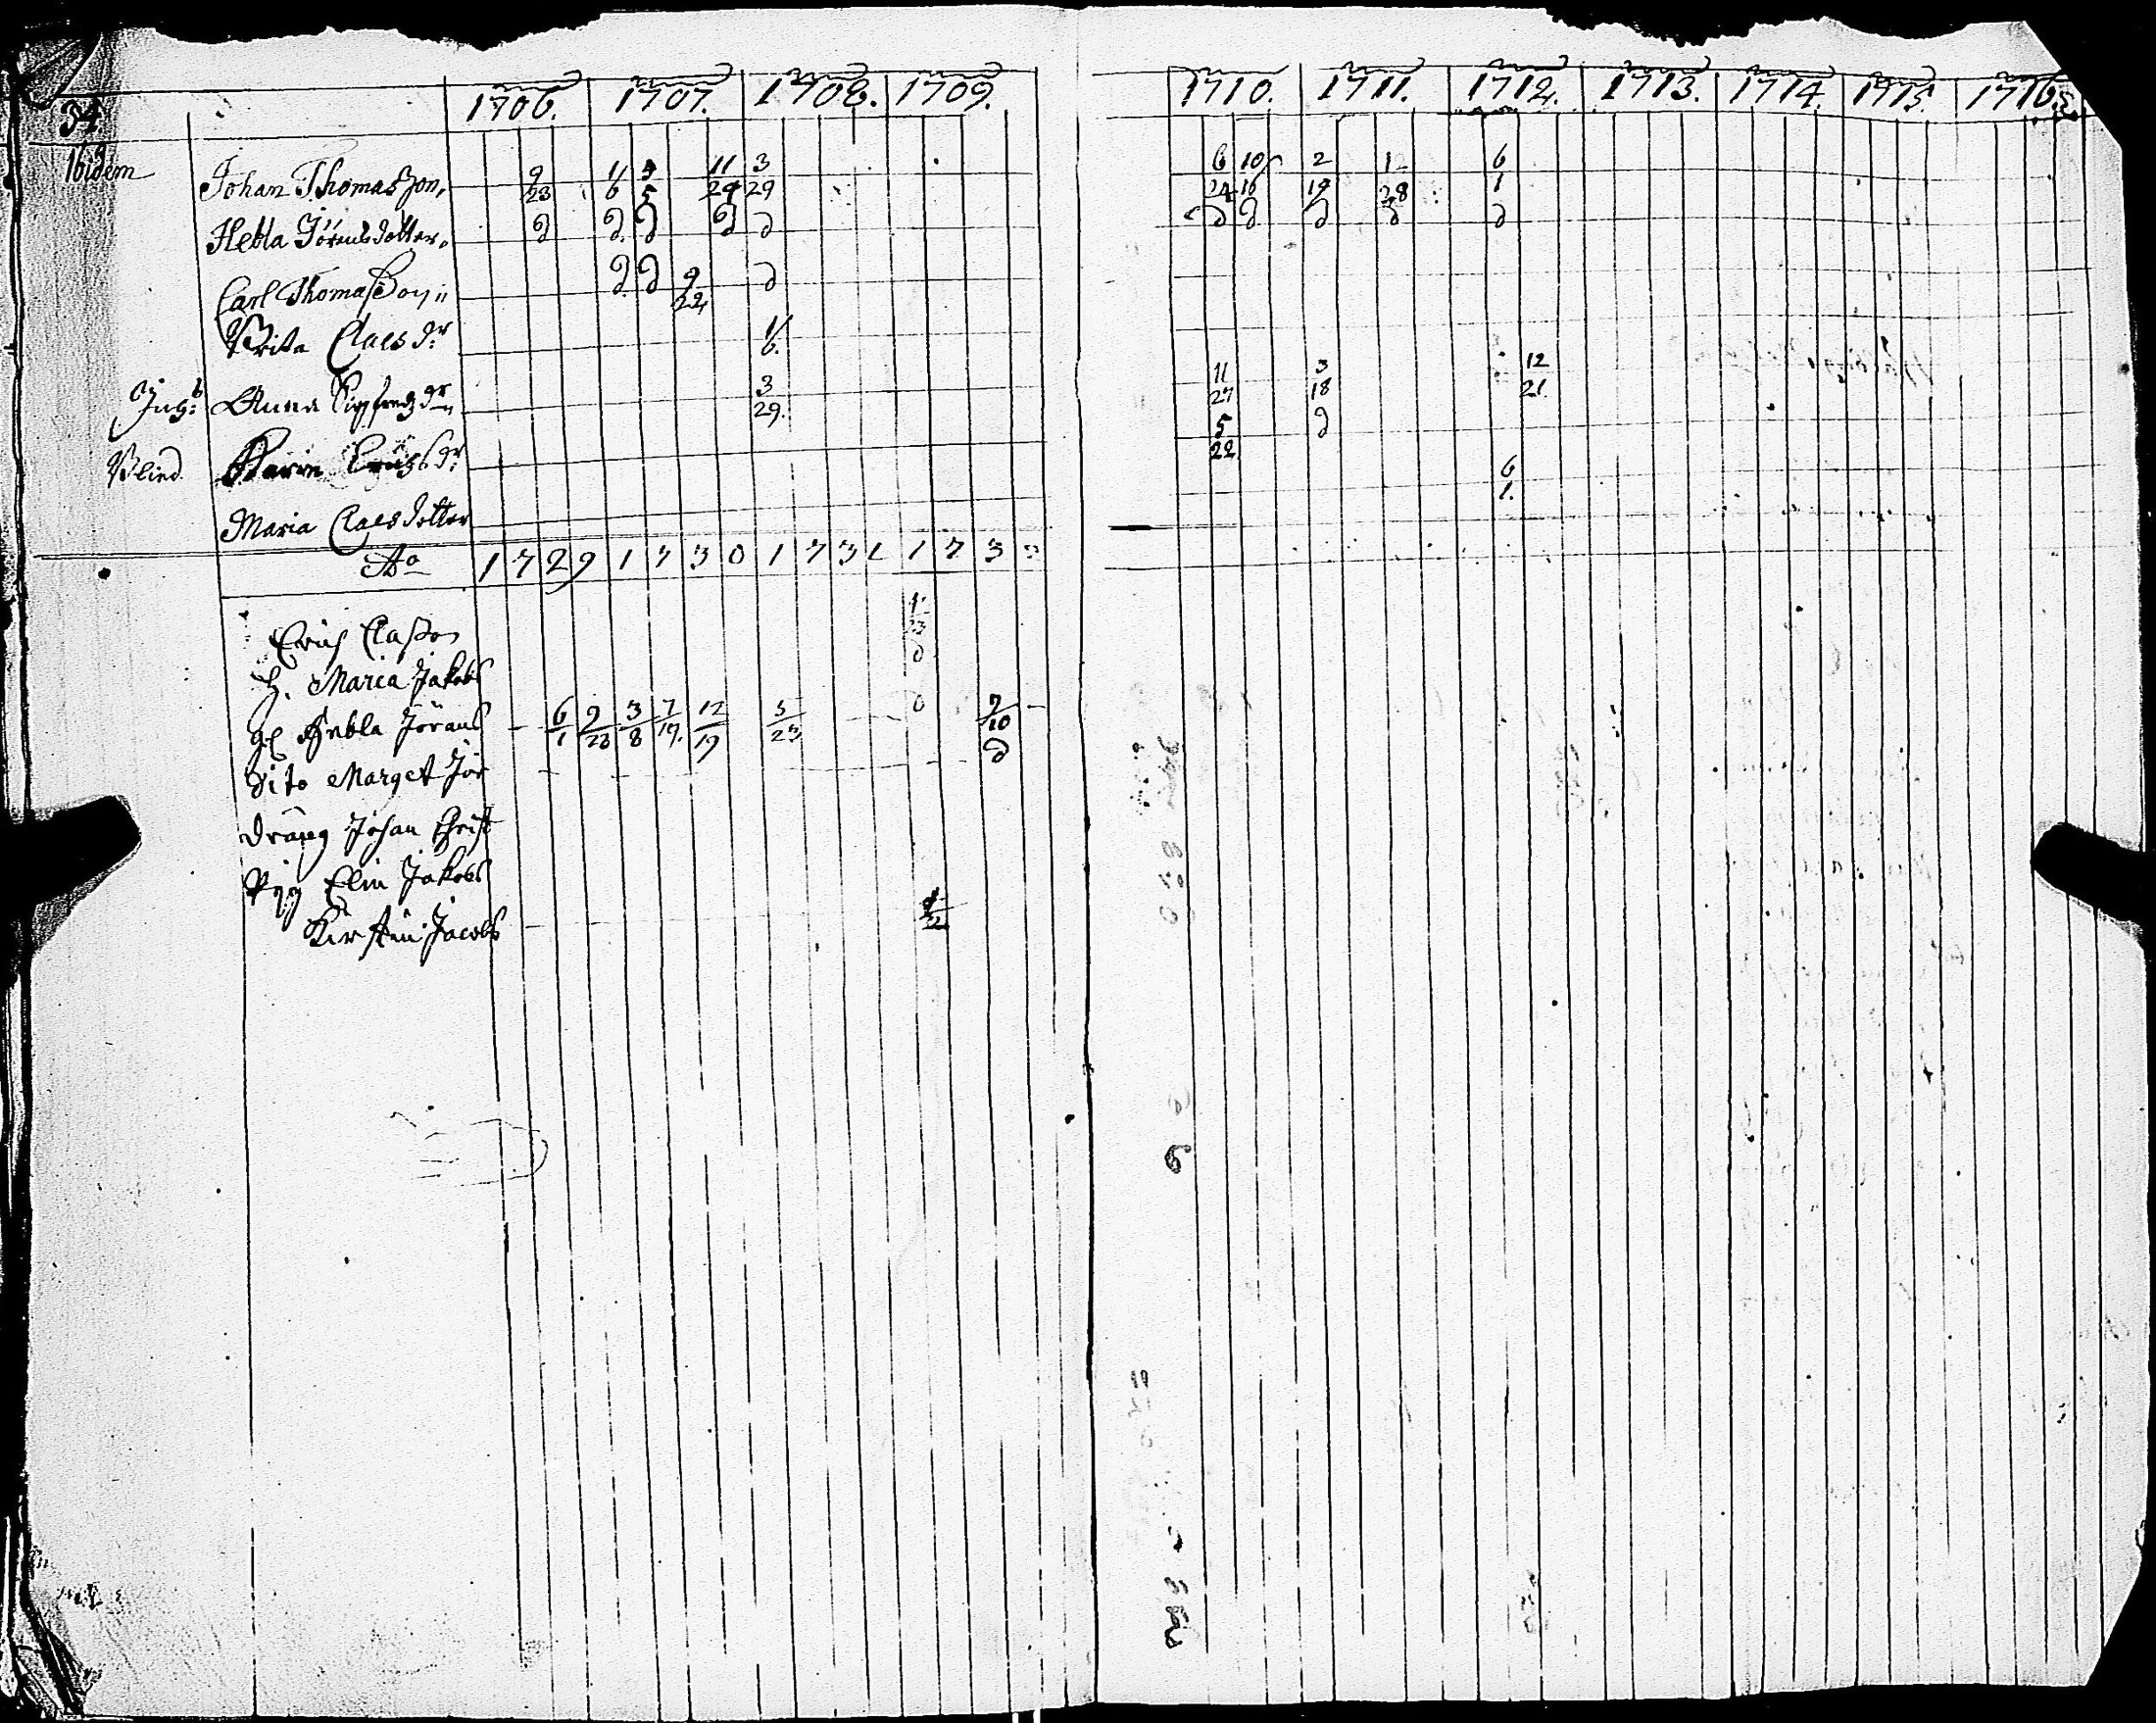 34
1706. 1707. 1708. 1709. 1710. 1711. 1712. 1713. 1714. 1715. 1716.
Ibidem Johan Thomasson, 9/23 1/6 3/5 11/29 3/29 6/24 10/16 2/19 1/28 6/1
Hebla Jöransdotter. d d d d d d d d d d
Carl Thomasson d d 9/22 d
Brita Claes dr 1/6.
Jngb: Anna Sigfredz dr 3/29. 11/27 3/18 12/21.
Blind Karin Erichs dr 5/22 d
Maria Claesdotter 6/1.
Ao 1729 1730 1731 173
Erich Claßon
H. Maria Jakobs d
Hebla Jörans 6/1 9/23 3/8 7/19. 12/19 5/23 9/10
dito Marget Jör d
Dräng Johan Christ
Pig Elin Jakobs
Kirstin Jacobs